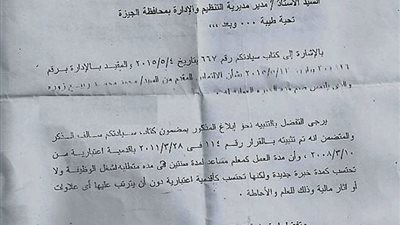 السيد الأستاذ / مدير مديرية التنظيم والإدارة بمحافظة الجيزة
تحية طيبة ٠٠٠ وبعد ،،،
بالإشارة إلى كتاب سيادتكم رقم ٦٦٧ بتاريخ ٢٠١٥/٥/٤ والمقيد بالإدارة برقم
٢٠١٥/٥/١٢ بشأن الالتماس المقدم من السيد/
يرجى التفضل بالتنبيه نحو إبلاغ المذكور بمضمون كتاب سيادتكم سالف الذكر
والمتضمن انه تم تثبيته بالقرار رقم ١١٤ فى ٢٠١١/٣/٢٨ باقدمية اعتبارية من
٢٠٠٨/٣/١٠ ، وأن مدة العمل كمعلم مساعد لمدة سنتين هى مده متطلبه لشغل الوظيفة ولا
تحتسب كمدة خبرة جديدة ولكنها تحتسب كأقدمية اعتبارية دون أن يترتب عليها أى علاوات
أو اثار مالية وذلك للعلم والأحاطة .